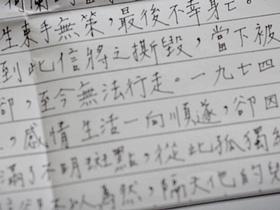 生束手無策,最後不幸身亡。
到此信將之撕毀,當下被
卻,至今無法行走。一九七四
,感情生活一向順遂,卻因
滿了不明斑點,從此孤獨
為然,隔天他的兒